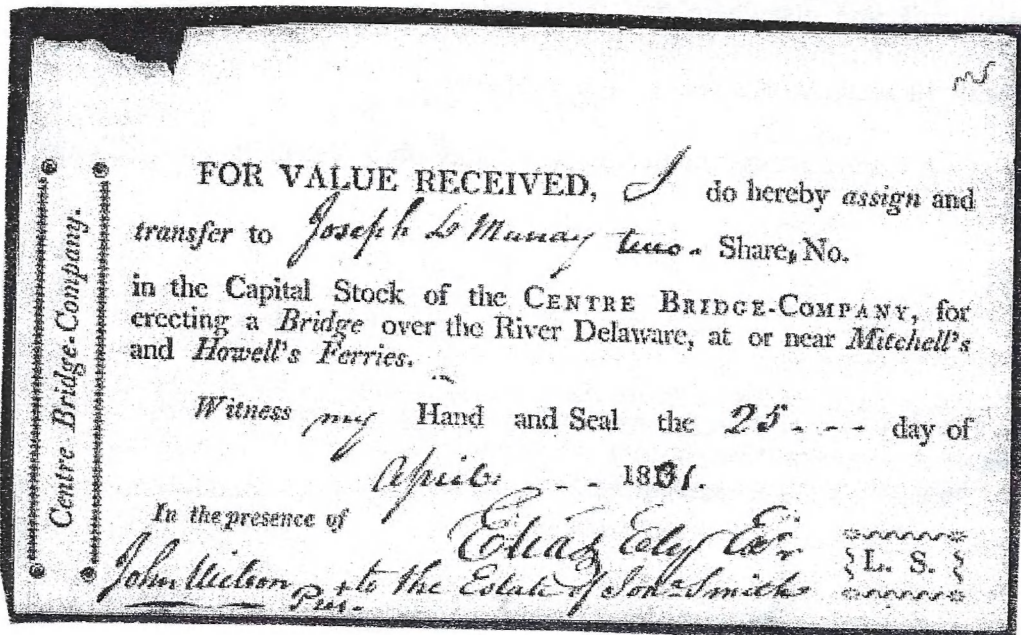 Centre Bridge-Company.
FOR VALUE RECEIVED, I do hereby assign and
transfer to Joseph D Murray two - Share, No.
in the Capital Stock of the CENTRE BRIDGE-COMPANY, for
erecting a Bridge over the River Delaware, at or near Mitchell's
and Howell's Ferries.
Witness my Hand and Seal the 25 - - - day of
April - - - 1831.
In the presence of
Elias Ely Exr.
L. S.
John Wilson to the Estate of Jonª Smith